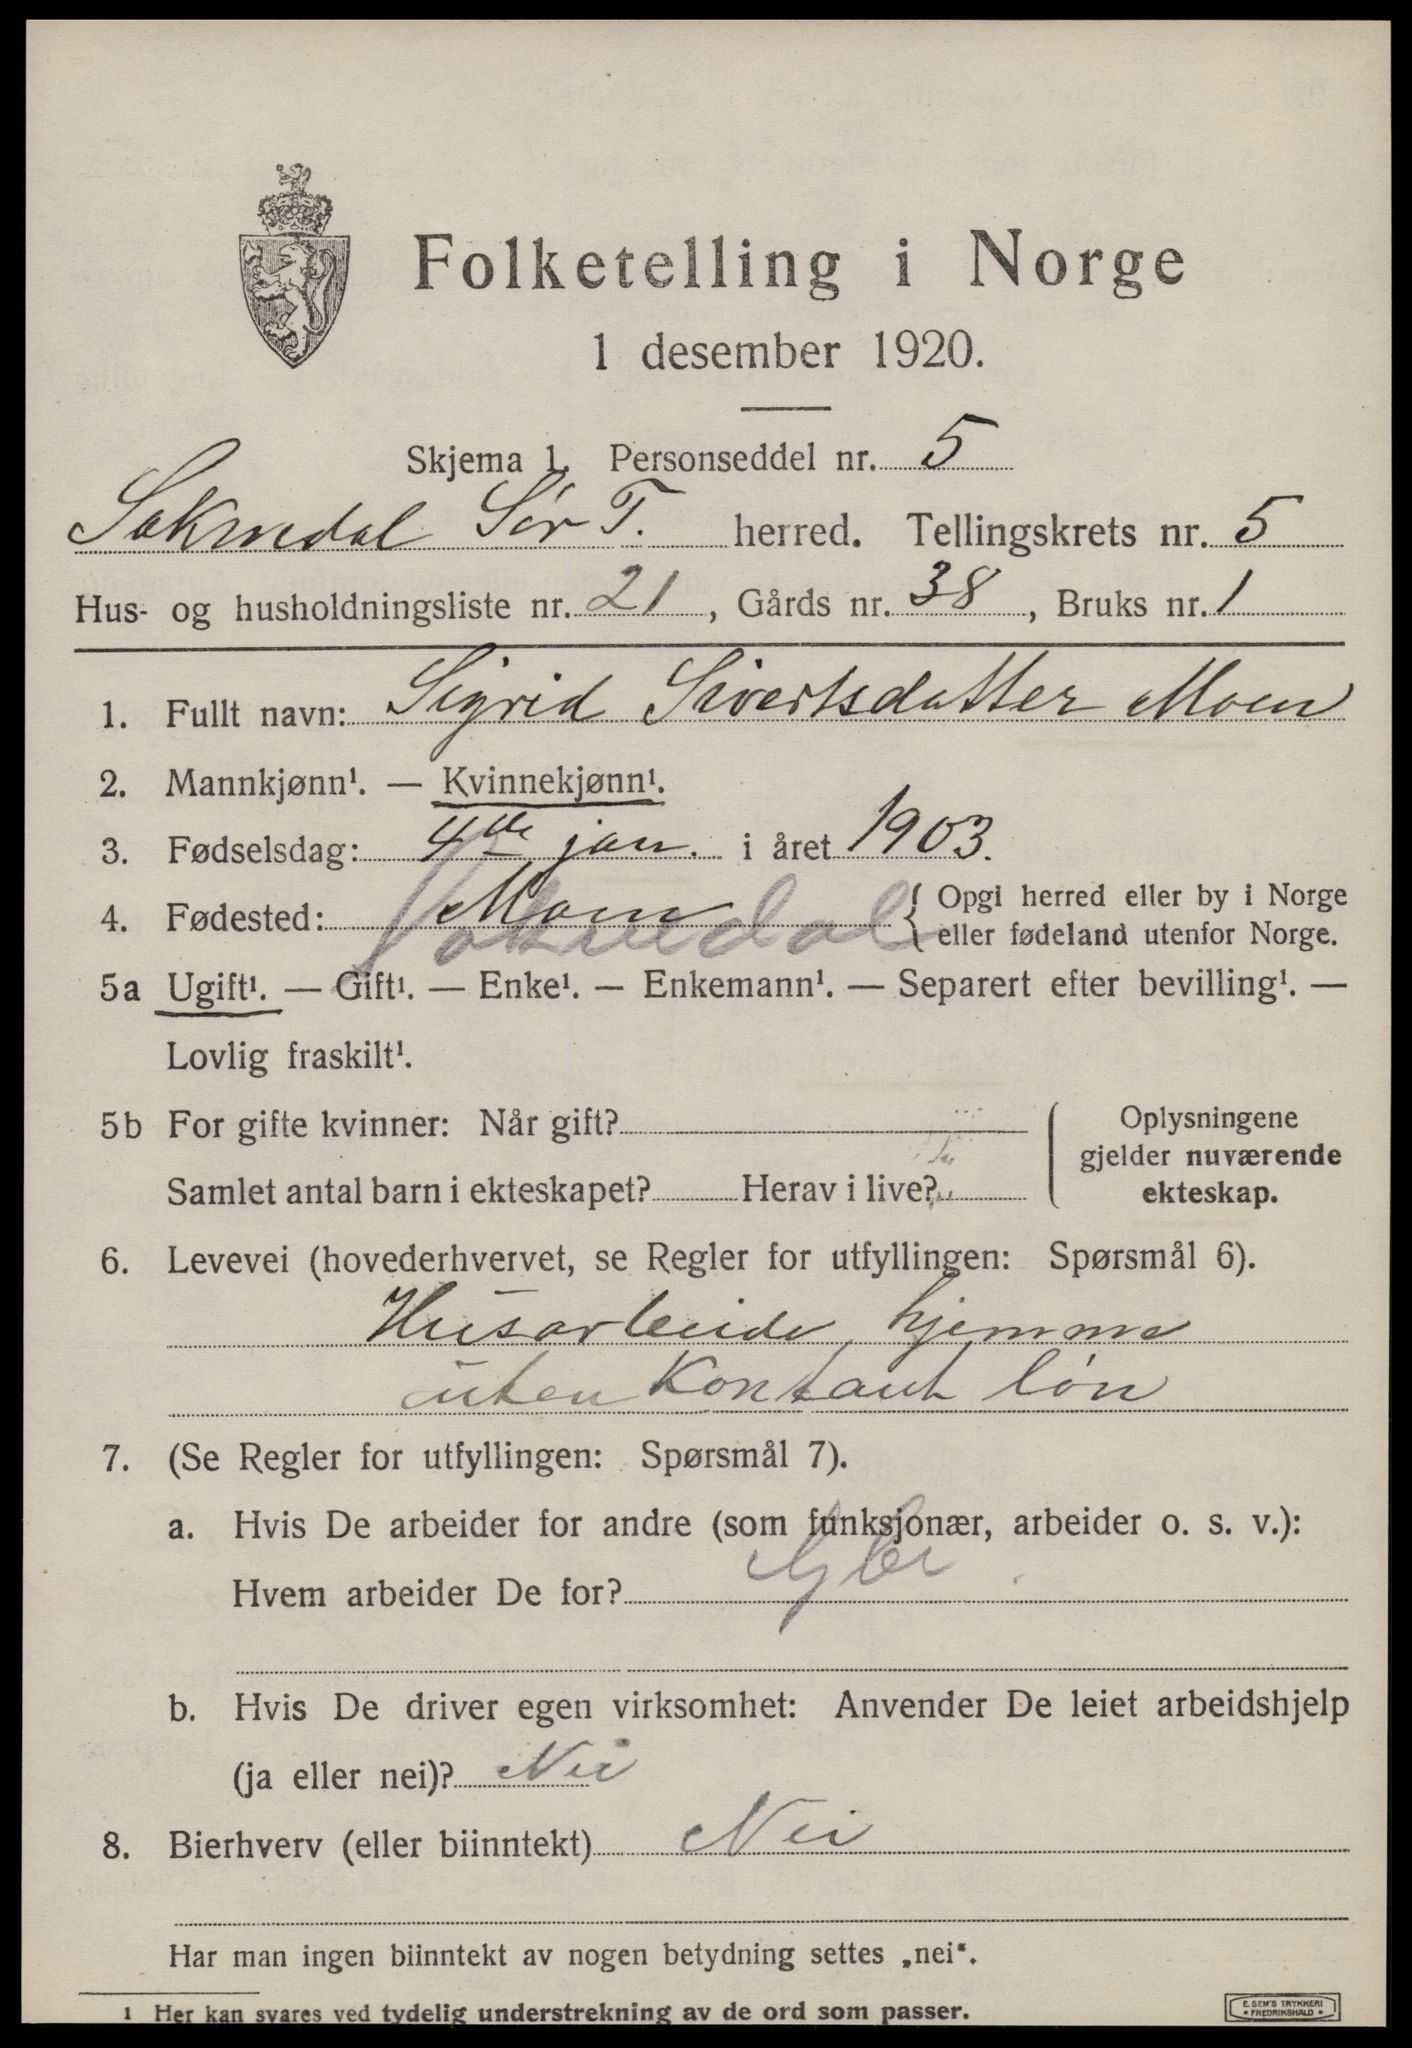 Folketelling i Norge
1 desember 1920.
Skjema 1. Personseddel nr. 5
Soknedal Sør T. herred. Tellingskrets nr. 5
Hus- og husholdningsliste nr. 21, Gårds nr. 38, Bruks nr. 1
1. Fullt navn: Sigrid Sivertsdatter Moen
2. Mannkjønn¹. — Kvinnekjønn¹.
3. Fødselsdag: 4de jan. i året 1903.
4. Fødested: Moen Soknedal { Opgi herred eller by i Norge
eller fødeland utenfor Norge.
5a Ugift¹. — Gift¹. — Enke¹. — Enkemann¹. — Separert efter bevilling¹. —
Lovlig fraskilt¹.
5b For gifte kvinner: Når gift?
Samlet antal barn i ekteskapet? Herav i live?
Oplysningene
gjelder nuværende
ekteskap.
6. Levevei (hovederhvervet, se Regler for utfyllingen: Spørsmål 6).
Husarbeide hjemme
uten kontant løn
7. (Se Regler for utfyllingen: Spørsmål 7).
a. Hvis De arbeider for andre (som funksjonær, arbeider o. s. v.):
Hvem arbeider De for?
b. Hvis De driver egen virksomhet: Anvender De leiet arbeidshjelp
(ja eller nei)? Nei
8. Bierhverv (eller biinntekt) Nei
Har man ingen biinntekt av nogen betydning settes „nei“.
1 Her kan svares ved tydelig understrekning av de ord som passer.
E. SEM'S TRYKKERI
FREDRIKSHALD